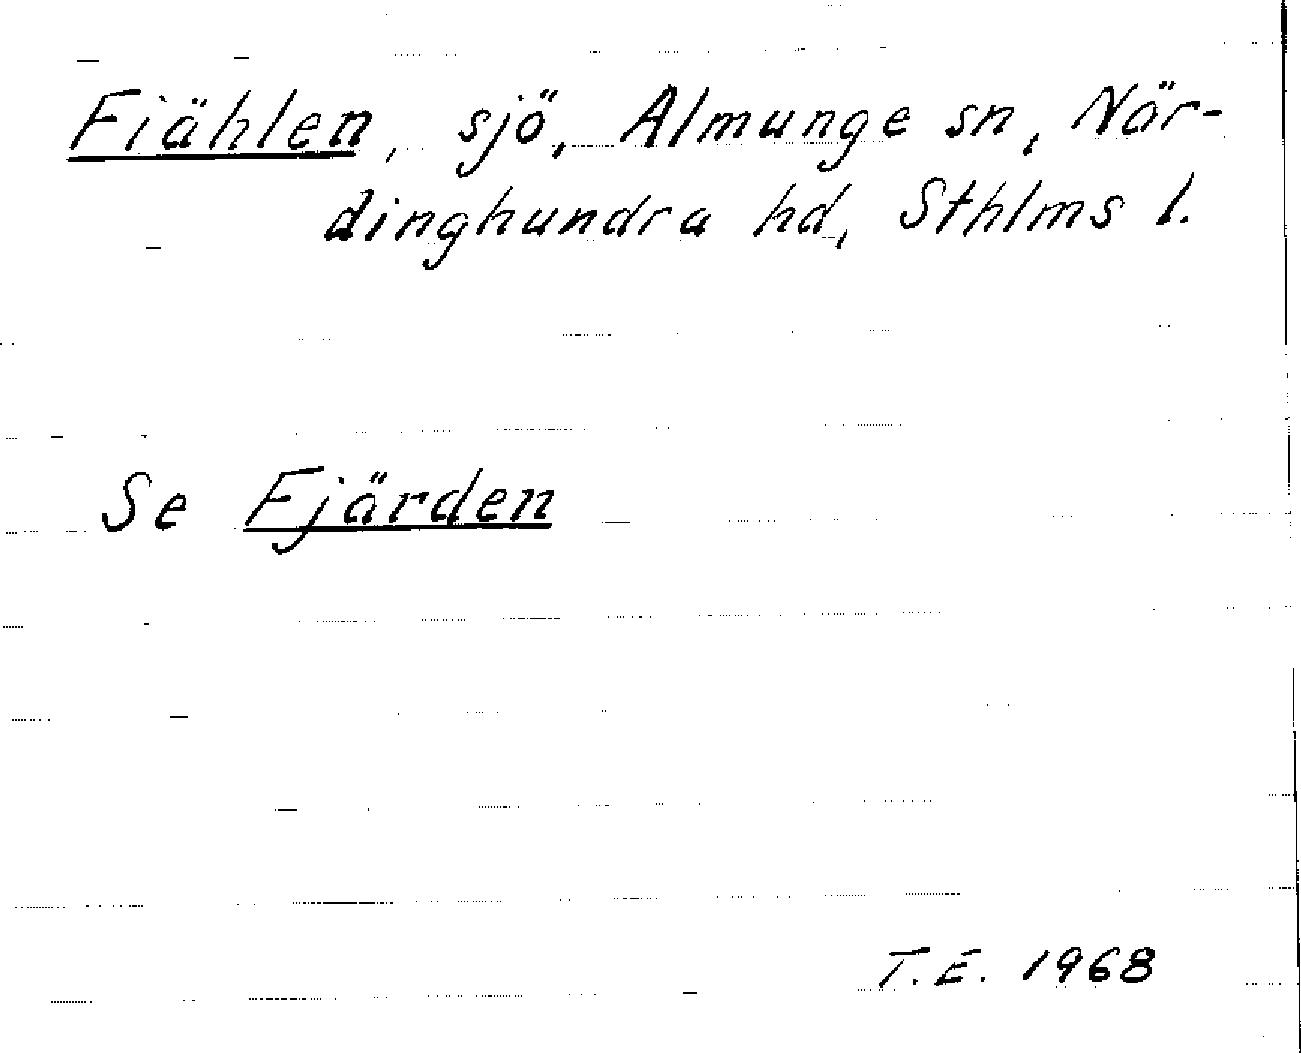 Fiählen, sjö, Almunge sn, När-
dinghundra hd, Sthlms l.
Se Fjärden
T.E. 1968